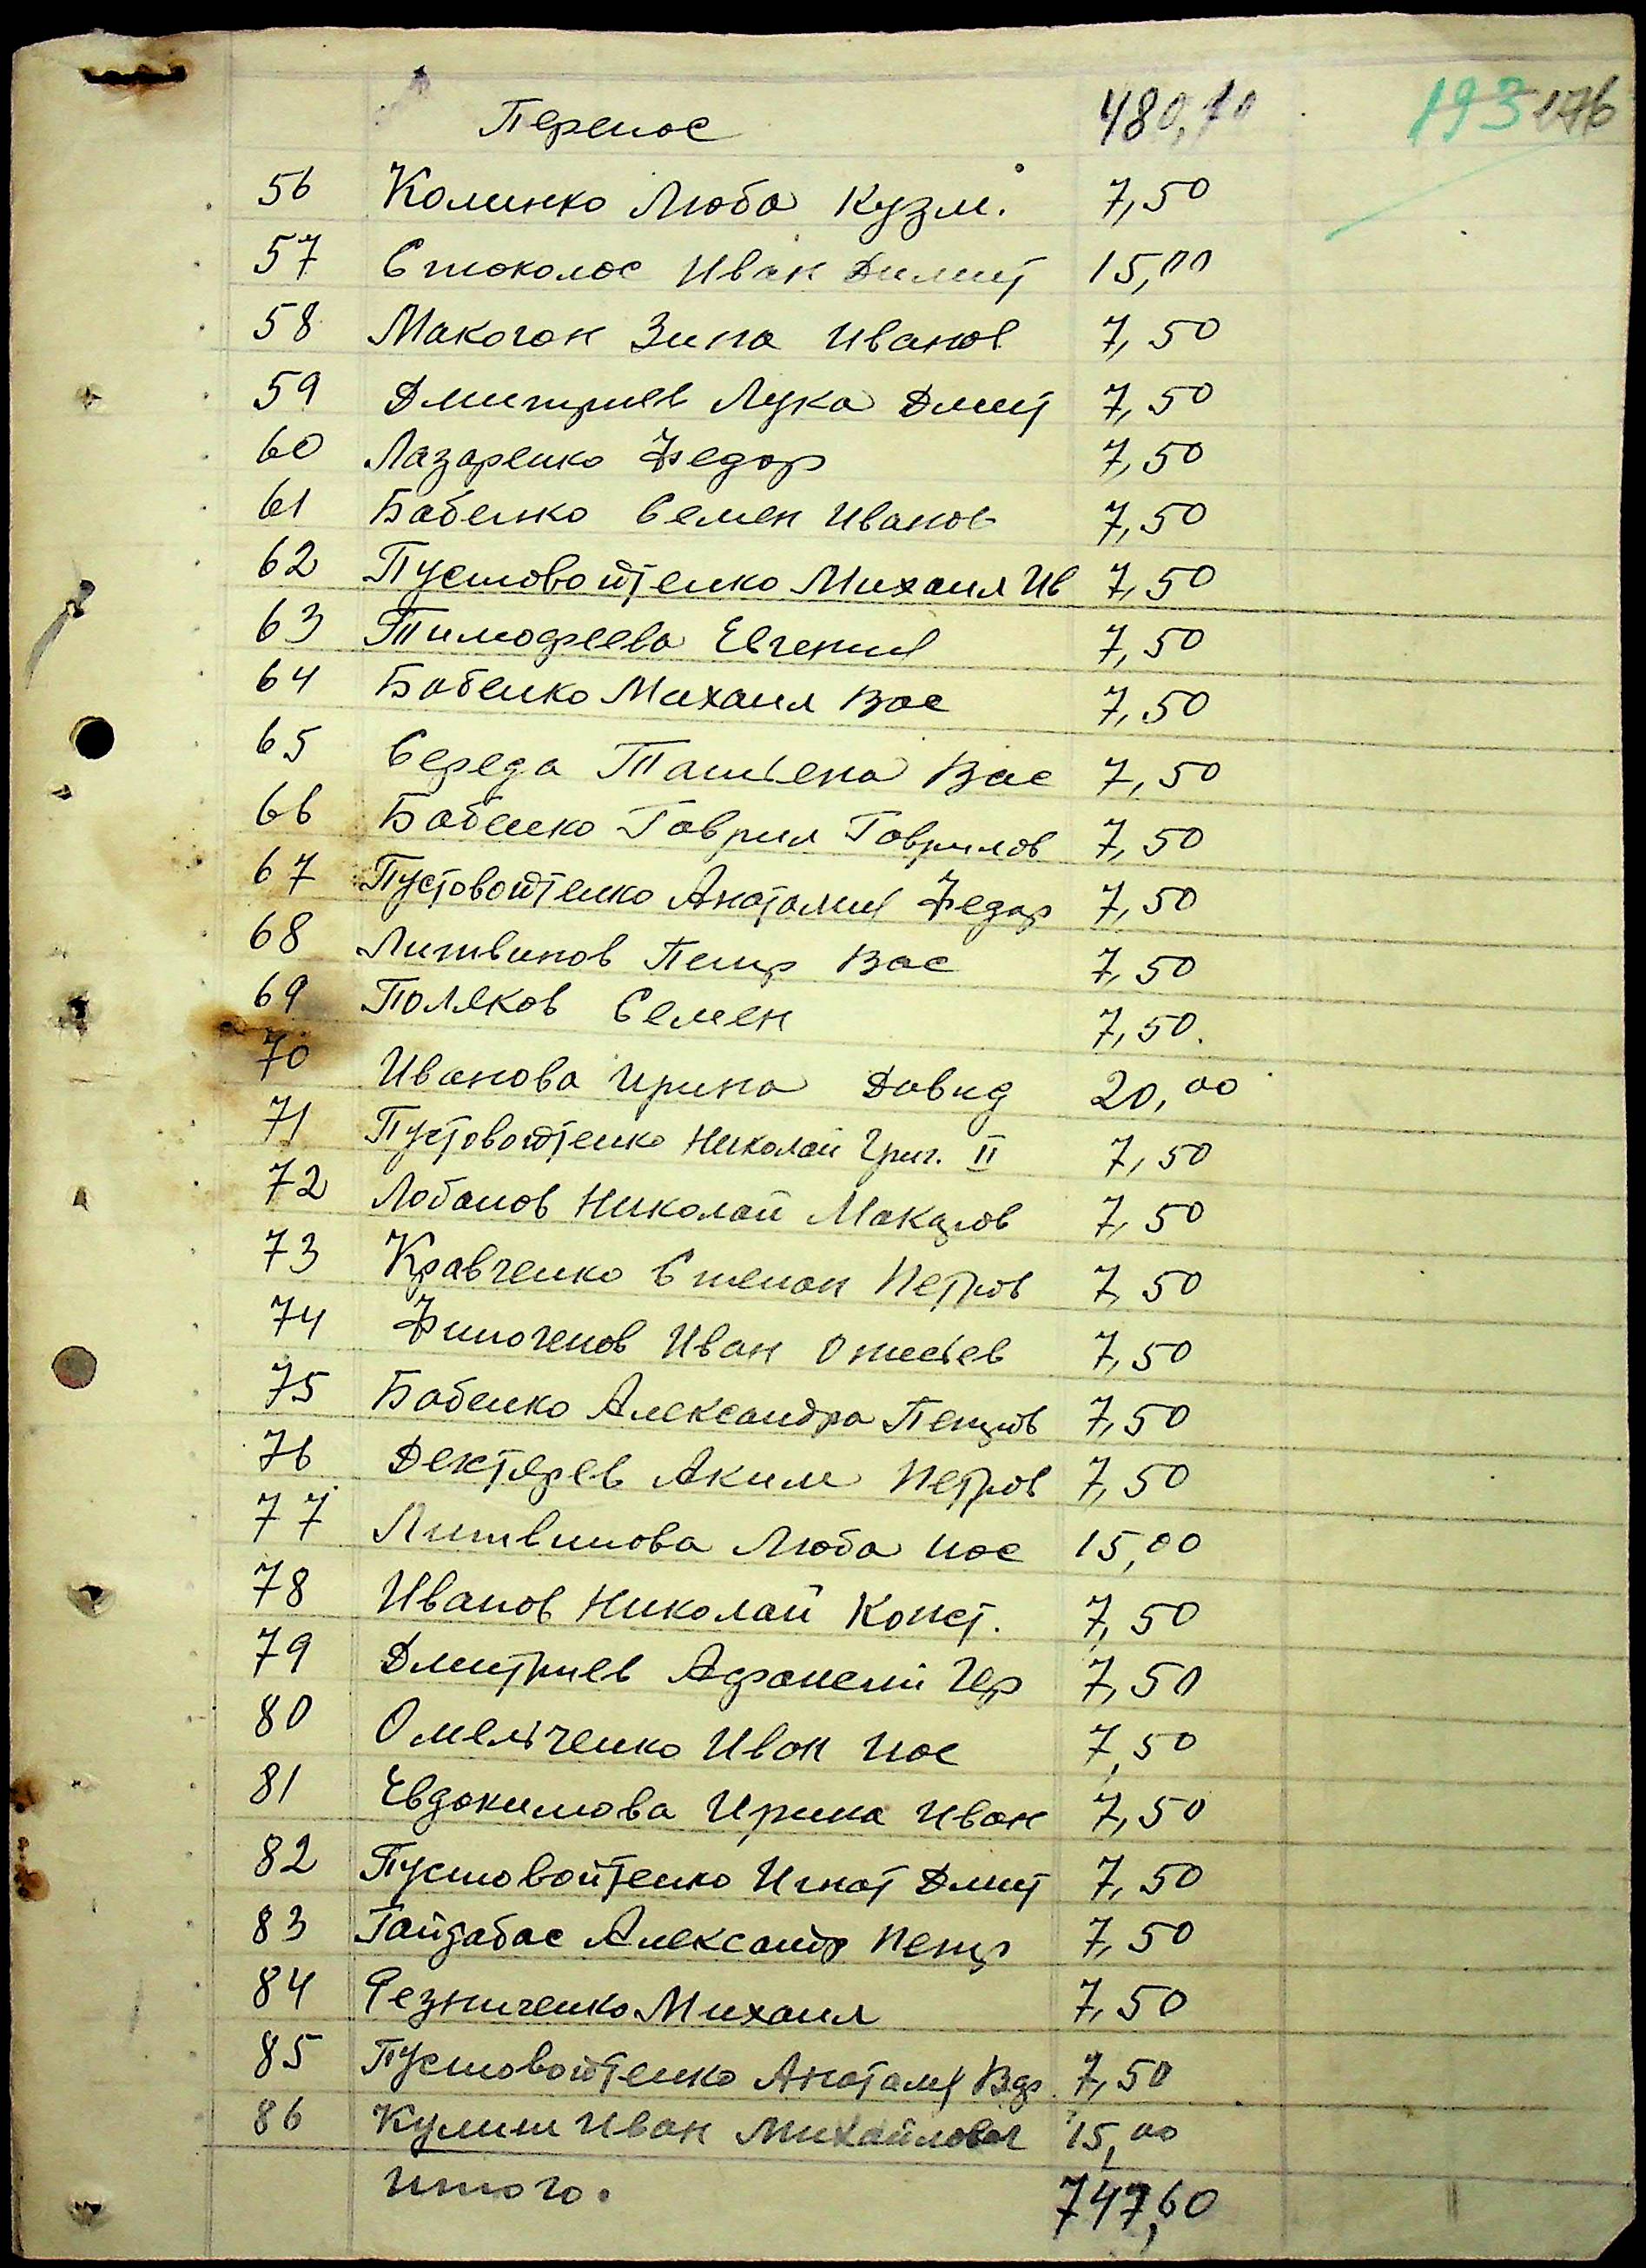 193 176
Перенос 480,10
56 Колинко Люба Кузм. 7,50
57 Стоколос Иван Димит 15,00
58 Макогон Зина Иванов 7,50
59 Дмитриев Лука Дмит 7,50
60 Лазаренко Федор 7,50
61 Бабенко Семен Иванов 7,50
62 Пустовойтенко Михаил Ив 7,50
63 Тимофеева Евгения 7,50
64 Бабенко Михаил Вас 7,50
65 Середа Татьена Вас 7,50
66 Бабенко Гаврил Гаврилов 7,50
67 Пустовойтенко Анатолий Федор 7,50
68 Литвинов Петр Вас 7,50
69 Поляков Семен 7,50.
70 Иванова Ирина Давид 20,00
71 Пустовойтенко Николай Григ. II 7,50
72 Лобанов Николай Макаров 7,50
73 Кравченко Степан Петров 7,50
74 Финогенов Иван 7,50
75 Бабенко Александра Петров 7,50
76 Дектярев Аким Петров 7,50
77 Литвинова Люба Иос 15,00
78 Иванов Николай Конст. 7,50
79 Дмитриев Афанасий Гр 7,50
80 Омельченко Иван Иос 7,50
81 Евдокимова Ирина Иван 7,50
82 Пустовойтенко Игнат Дмит 7,50
83 Гайдабас Александр Петр 7,50
84 Резниченко Михаил 7,50
85 Пустовойтенко Анатолий 7,50
86 Кулиш Иван Михайлович 15,00
Итого. 747,60